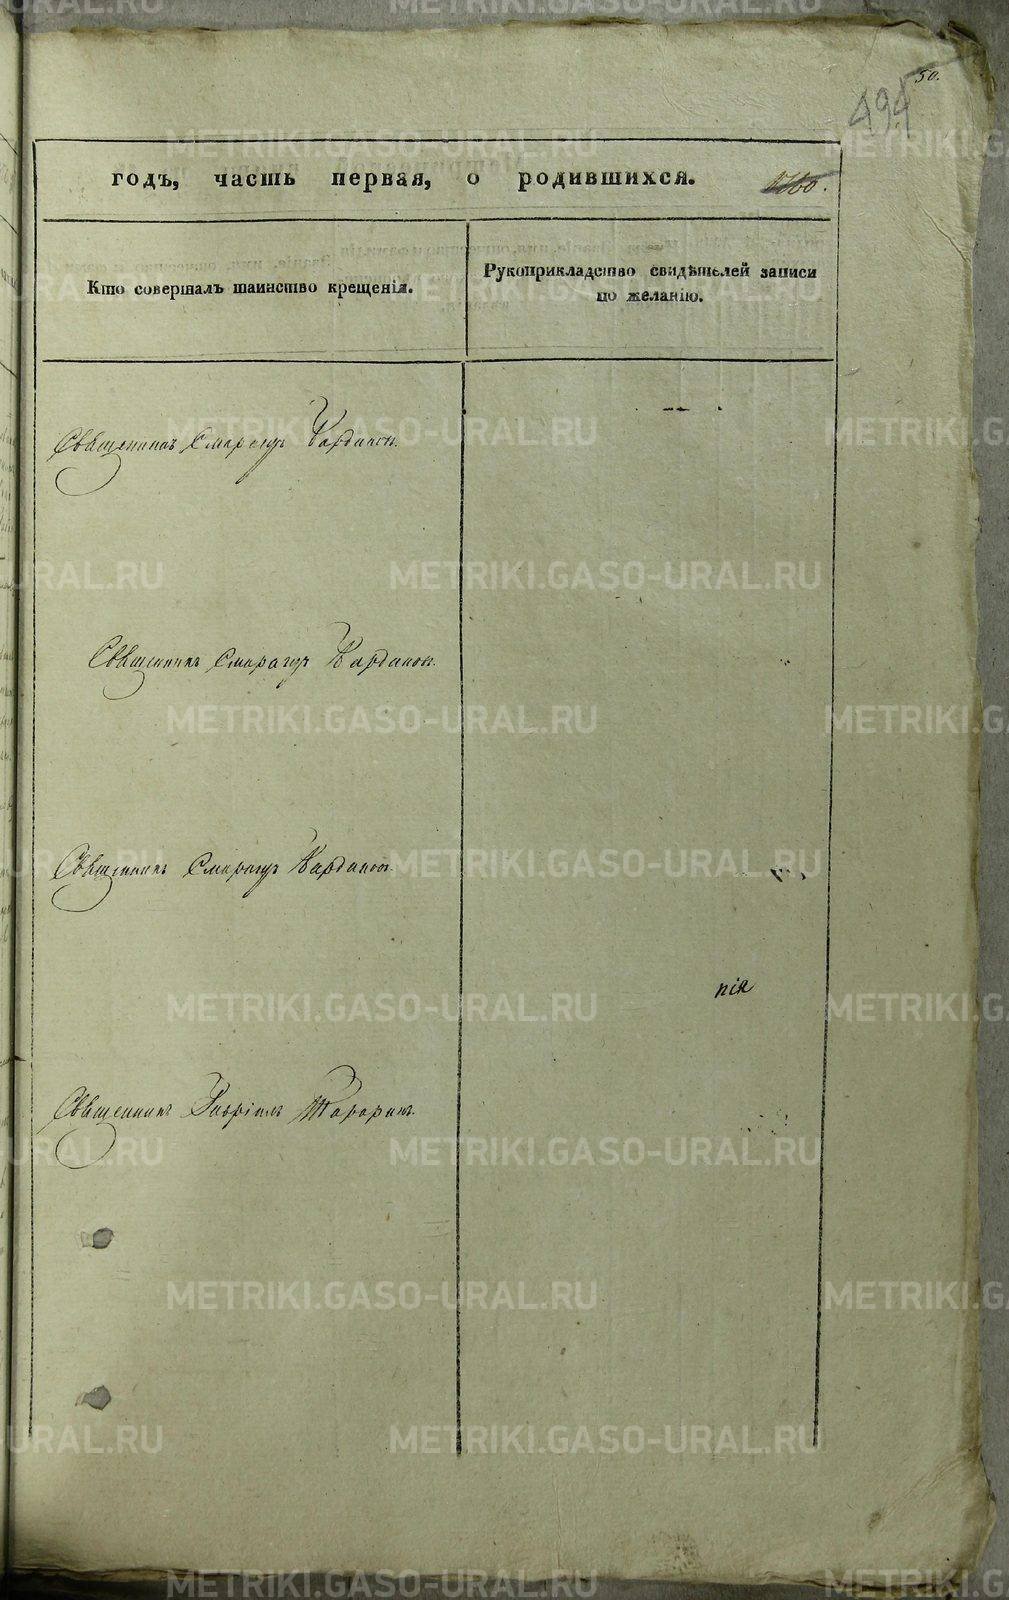 50.
494
годъ, часть первая, о родившихся. 1160.
Кто совершалъ таинство крещенія.
Рукоприкладство свидѣтелей записи
по желанію.
Священникъ Смарагдъ Кардаковъ.
Священникъ Смарагдъ Кардаковъ.
Священникъ Смарагдъ Кардаковъ.
нія
Священникъ Гавріилъ
METRIKI.GASO-URAL.RU